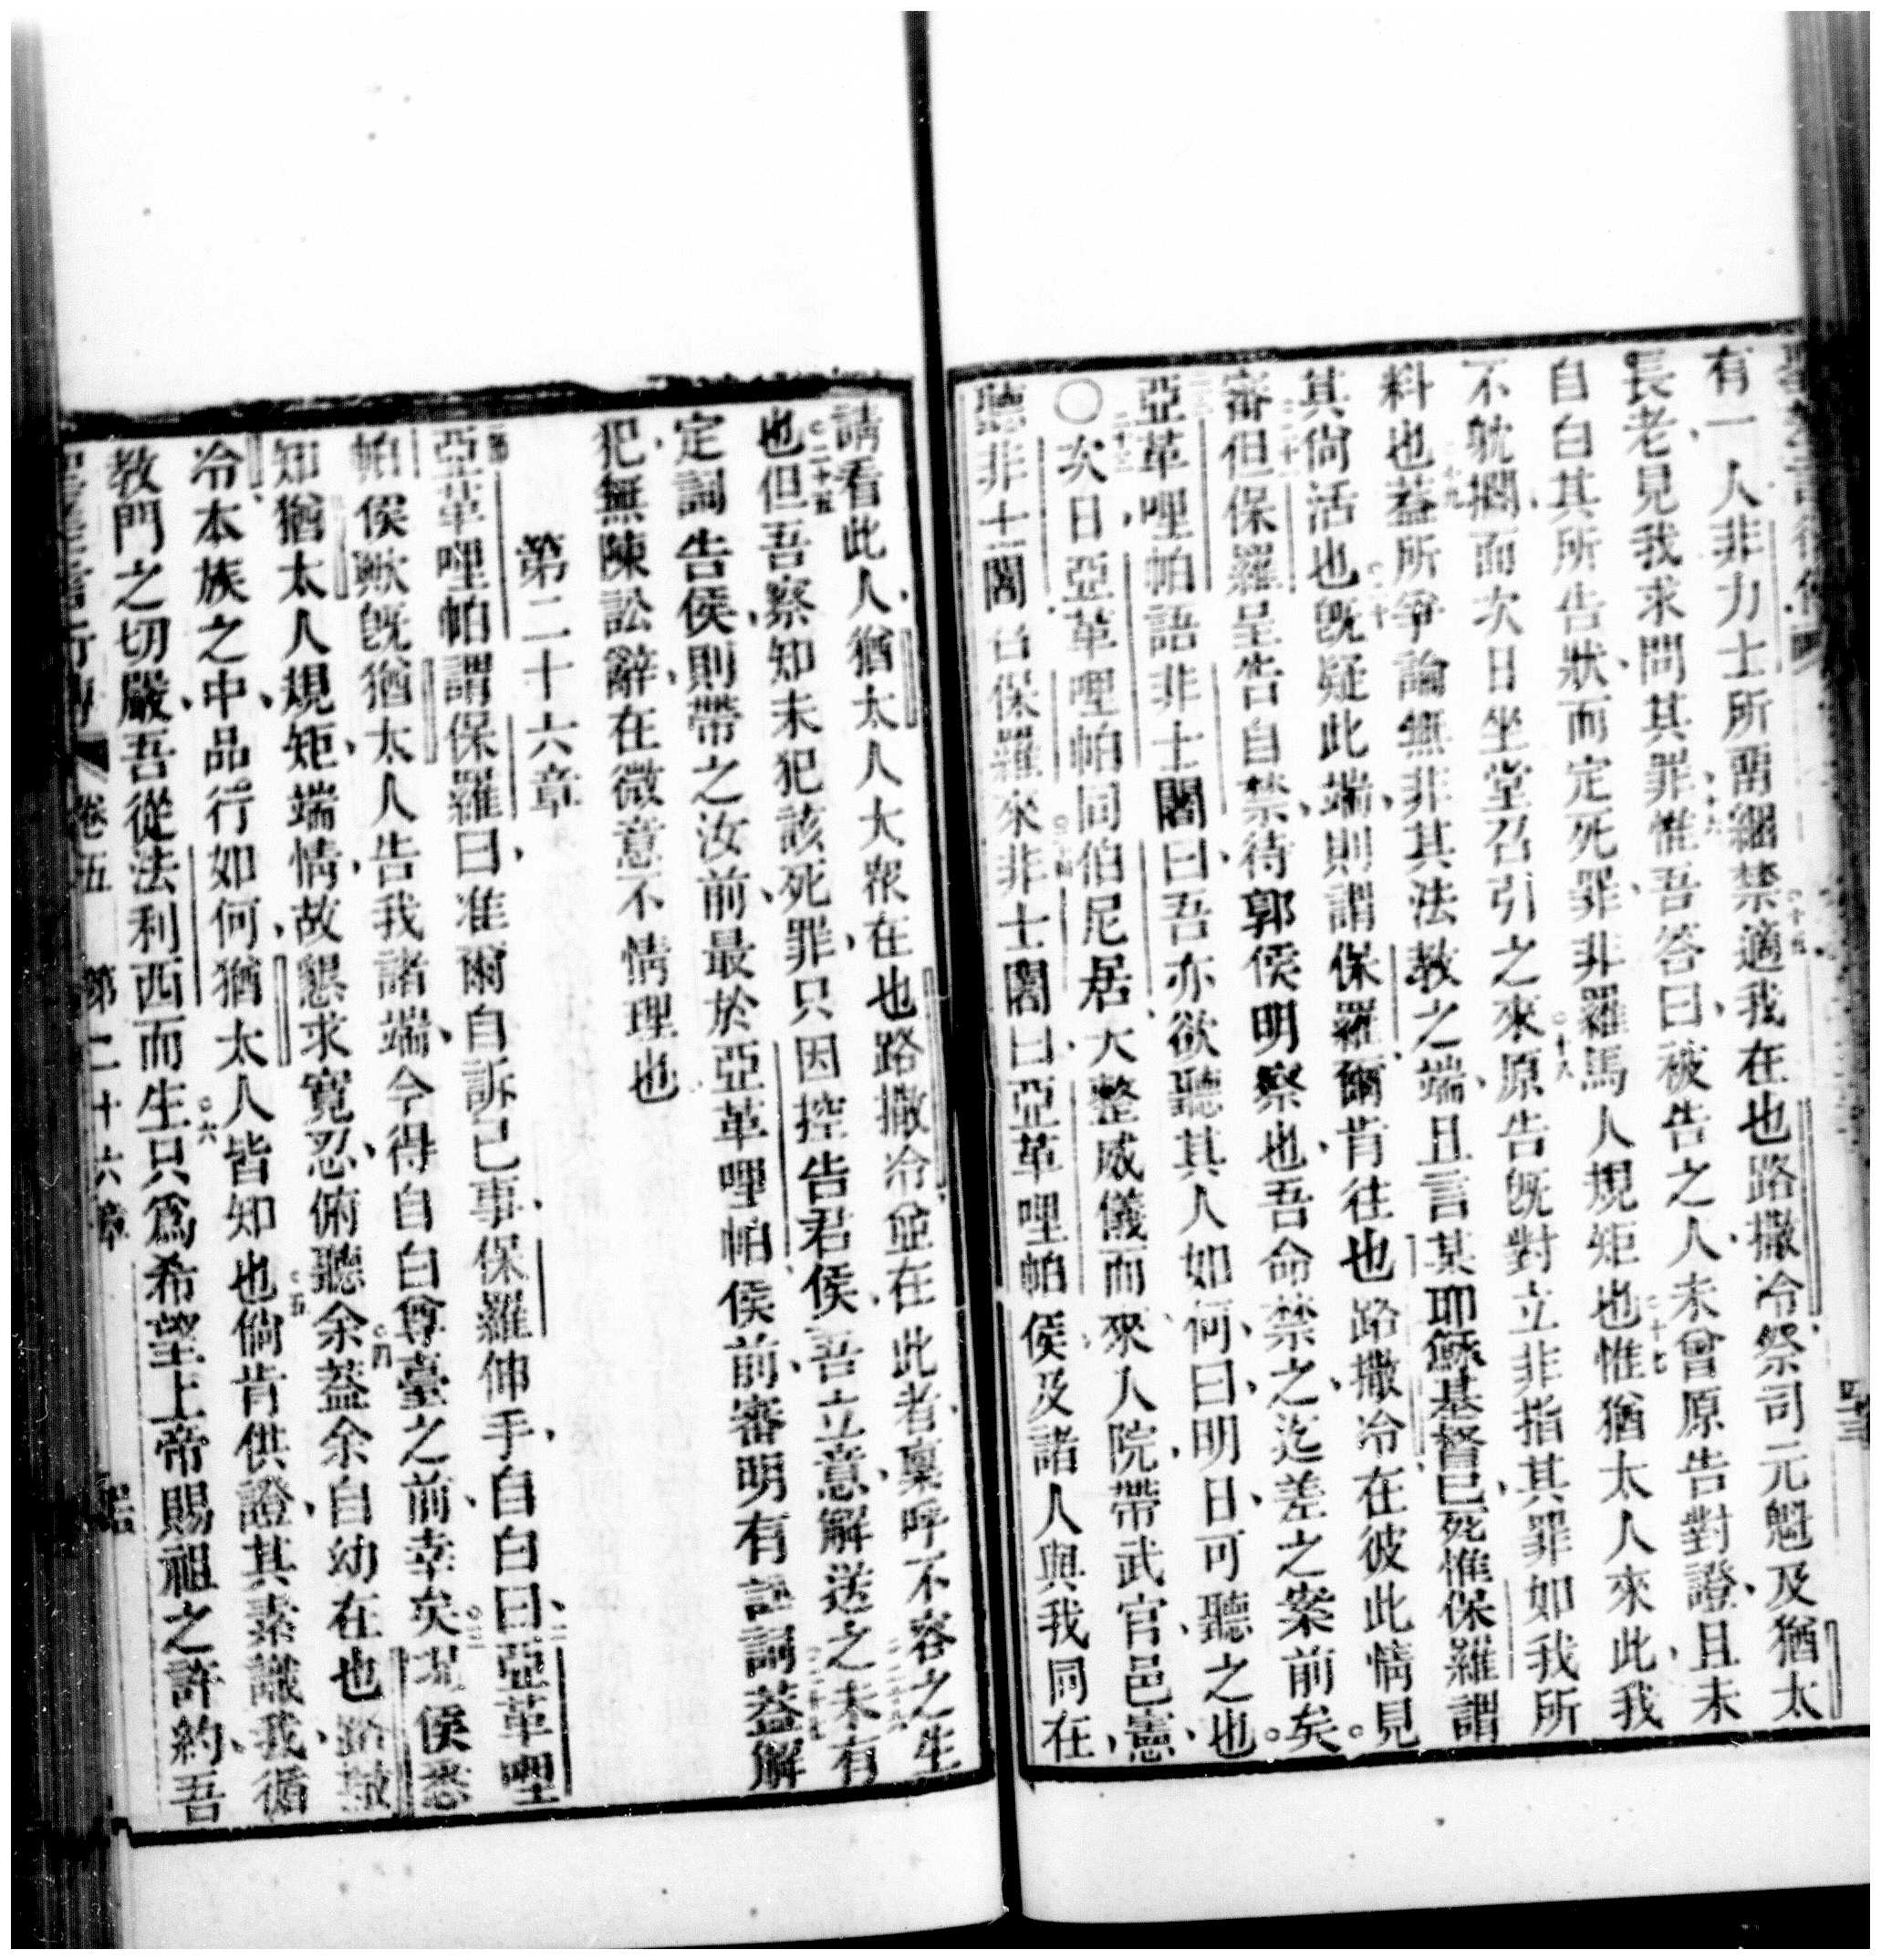 有一人非力士所畱綑禁適我在也路撒冷祭司元魁及猶太
長老見我求問其罪惟吾答曰被告之人未曾原告對證且未
自白其所告狀而定死罪非羅馬人規矩也惟猶太人來此我
不躭擱而次日坐堂召引之來原告既對立非指其罪如我所
料也葢所爭論無非其法教之端且言某耶穌基督已死惟保羅謂
其尙活也既疑此端則謂保羅爾肯往也路撒冷在彼此情見
審但保羅呈告自禁待郭侯明察也吾命禁之迄差之案前矣
亞革哩帕語非士闍曰吾亦欲聽其人如何曰明日可聽之也
〇次日亞革哩帕同伯尼居大整威儀而來入院帶武官邑憲
聽非士闍召保羅來非士闍曰亞革哩帕侯及諸人與我同在
請看此人猶太人大衆在也路撒冷並在此者稟呼不容之生
也但吾察知未犯該死罪只因控告君侯吾立意解送之未有
定詞告侯則帶之汝前最於亞革哩帕侯前審明有詞葢解
犯無陳訟辭在微意不情理也
第二十六章
亞革哩帕謂保羅曰准爾自訴已事保羅伸手自白曰亞革哩
帕侯歟既猶太人告我諸端今得自白尊臺之前幸矣况侯悉
知猶太人規矩端情故懇求寬忍俯聽余葢余自幼在也路撒
冷本族之中品行如何猶太人皆知也倘肯供證其素識我循
教門之切嚴吾從法利西而生只爲希望上帝賜祖之許約吾
卷五 第二十六章